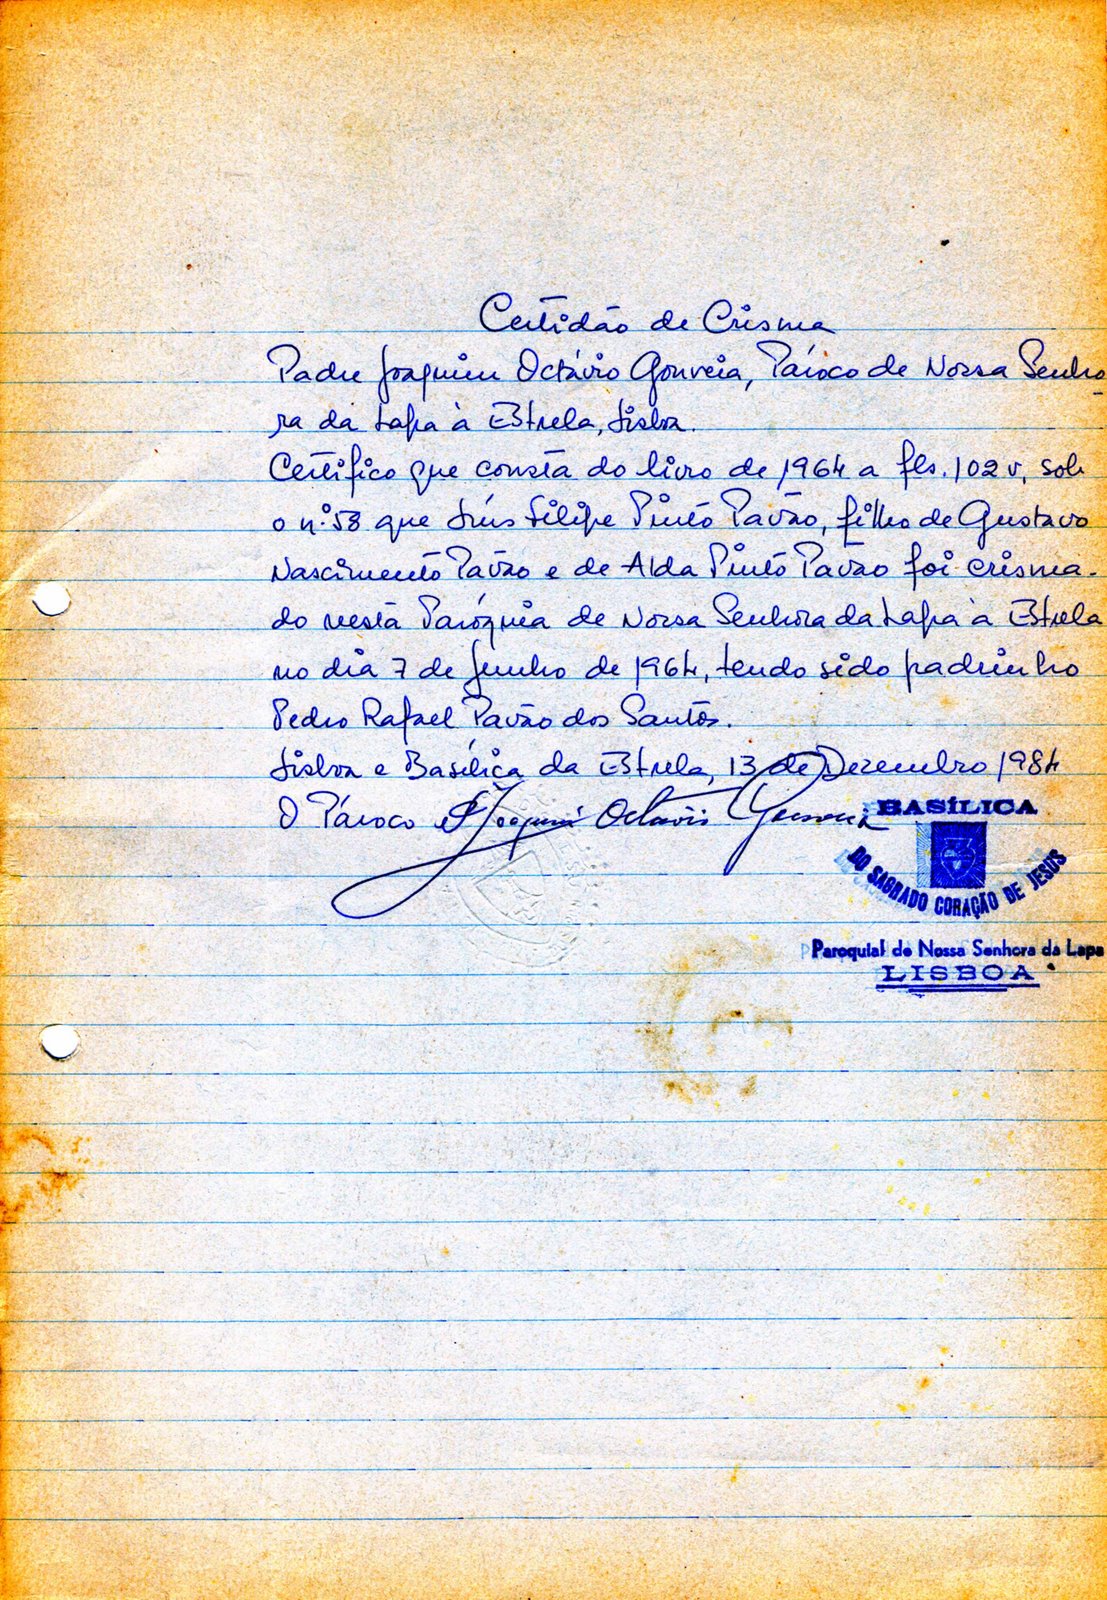 Certidão de Crisma
Padre Joaquim Octávio Gouveia, Pároco de Nossa Senho-
ra da Lapa à Estrela, Lisboa.
Certifico que consta do livro de 1964 a fls. 102 v, sob
o nº 58 que Luís Filipe Pinto Pavão, filho de Gustavo
Nascimento Pavão e de Alda Pinto Pavão foi crisma-
do nesta Paróquia de Nossa Senhora da Lapa à Estrela
no dia 7 de Junho de 1964, tendo sido padrinho
Pedro Rafael Pavão dos Santos.
Lisboa e Basílica da Estrela, 13 de Dezembro 1984
O Pároco Pe Joaquim Octávio Gouveia
BASÍLICA
DO SAGRADO CORAÇÃO DE JESUS
Paroquial de Nossa Senhora da Lapa
LISBOA